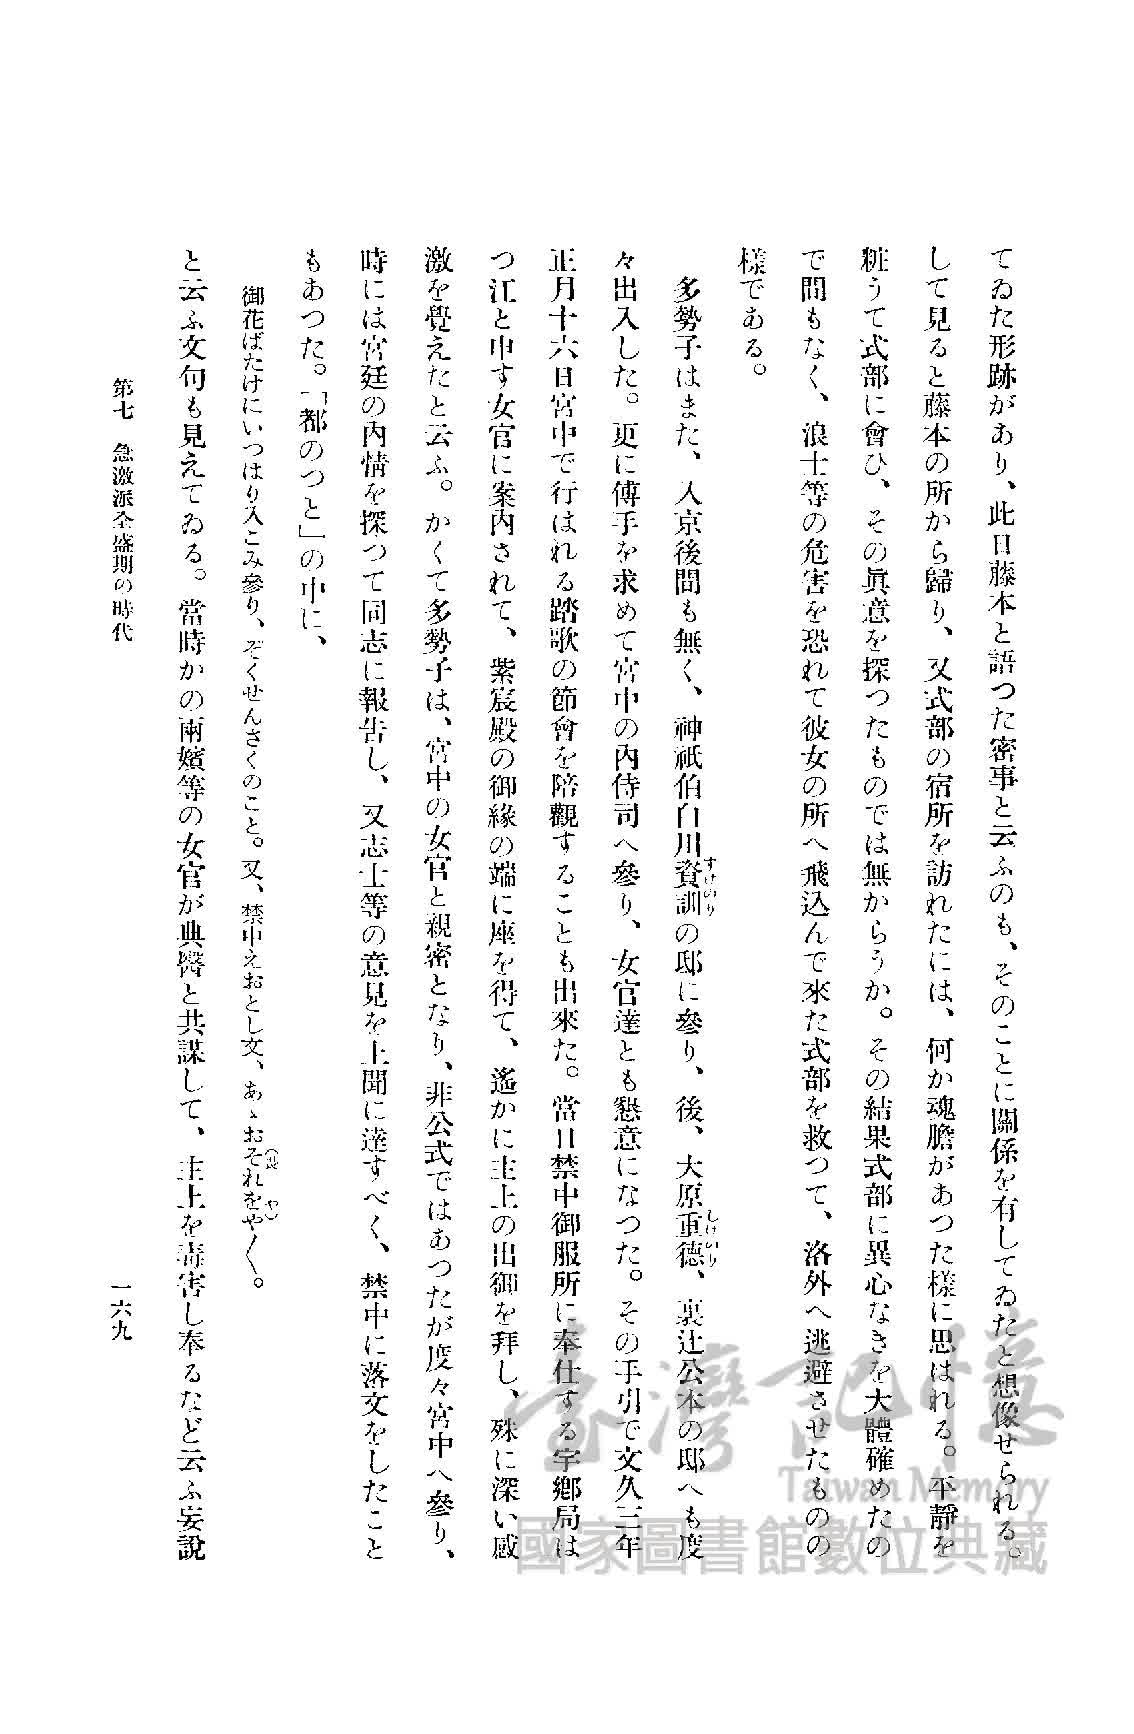 てゐた形跡があり、此日藤本と語つた密事と云ふのも、そのことに關係を有してゐたと想像せられる。
して見ると藤本の所から歸り、又式部の宿所を訪れたには、何か魂膽があつた樣に思はれる。平靜を
粧うて式部に會ひ、その眞意を探つたものでは無からうか。その結果式部に異心なきを大體確めたの
で間もなく、浪士等の危害を恐れて彼女の所へ飛込んで來た式部を救つて、洛外へ逃避させたものの
樣である。
多勢子はまた、入京後間も無く、神祇伯白川資訓の邸に參り、後、大原重德、裏辻公本の邸へも度
すけのり
しげのり
々出入した。更に傅手を求めて宮中の內侍司へ參り、女官達とも懇意になつた。その手引で文久三年
正月十六日宮中で行はれる踏歌の節會を陪觀することも出來た。當日禁中御服所に奉仕する宇鄕局は
つ江と申す女官に案內されて、紫宸殿の御緣の端に座を得て、遙かに主上の出御を拜し、殊に深い感
激を覺えたと云ふ。かくて多勢子は、宮中の女官と親密となり、非公式ではあつたが度々宮中へ參り、
時には宮廷の內情を探つて同志に報告し、又志士等の意見を上聞に達すべく、禁中に落文をしたこと
もあつた。「都のつと」の中に、
御花ばたけにいつはり入こみ參り、ぞくせんさくのこと。又、禁中えおとし文、あゝおそれをや〱。
と云ふ文句も見えてゐる。當時かの兩嬪等の女官が典醫と共謀して、主上を毒害し奉るなど云ふ妄說
第七 急激派全盛期の時代
一六九
臺灣記憶
Taiwan Memory
國家圖書館數位典藏